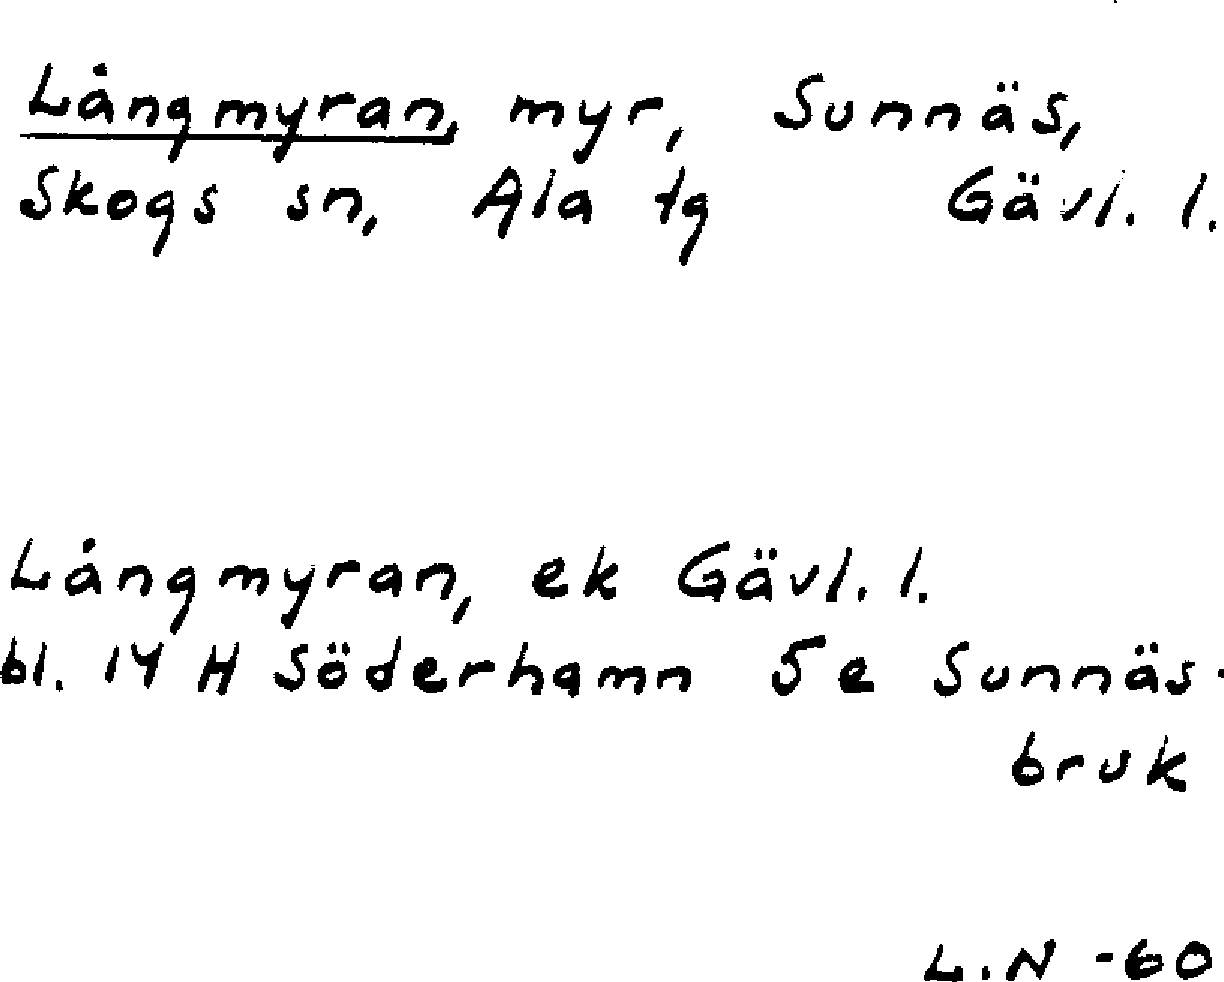 Långmyran, myr, Sunnäs,
Skogs sn, Ala tg Gävl. l.
Långmyran, ek Gävl. l.
bl. 14 H Söderhamn 5e Sunnäs-
bruk
L.N -60